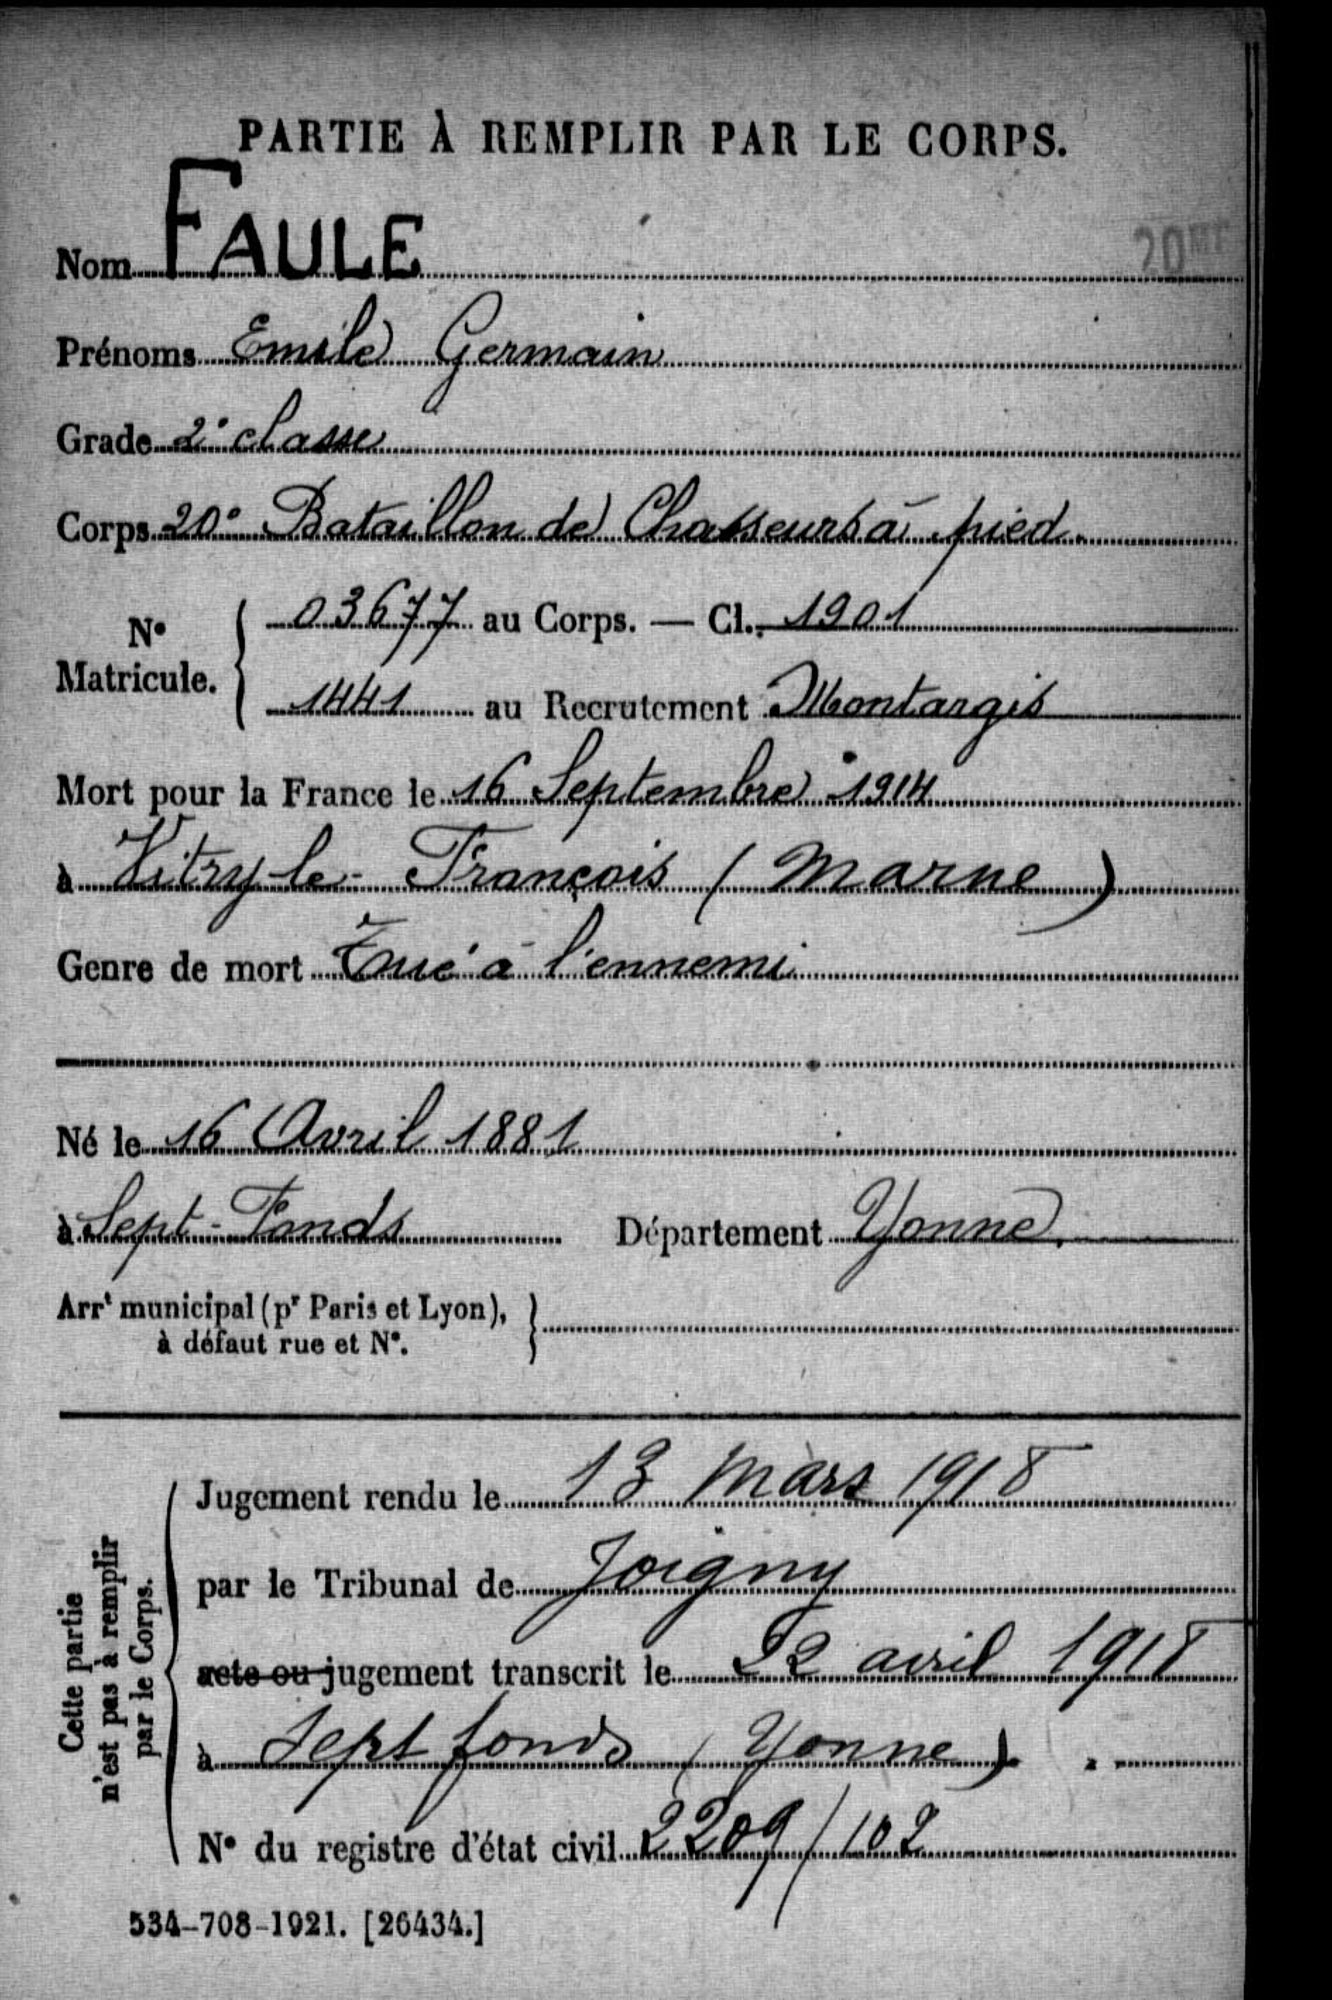 PARTIE À REMPLIR PAR LE CORPS.
Nom FAULE
20
Prénoms Emile Germain
Grade 2e classe
Corps 20e Bataillon de Chasseurs à pied.
No Matricule. { 03677 au Corps. — Cl. 1901
1441 au Recrutement Montargis
Mort pour la France le 16 Septembre 1914
à Vitry-le-François (Marne)
Genre de mort Tué à l'ennemi
Né le 16 Avril 1881
à Sept-Fonds Département Yonne.
Arrt municipal (pr Paris et Lyon), à défaut rue et No. }
Cette partie n'est pas à remplir par le Corps.
Jugement rendu le 13 mars 1918
par le Tribunal de Joigny
acte ou jugement transcrit le avril 1918
à Sept fonds (Yonne)
No du registre d'état civil 2209/102
534-708-1921. [26434.]